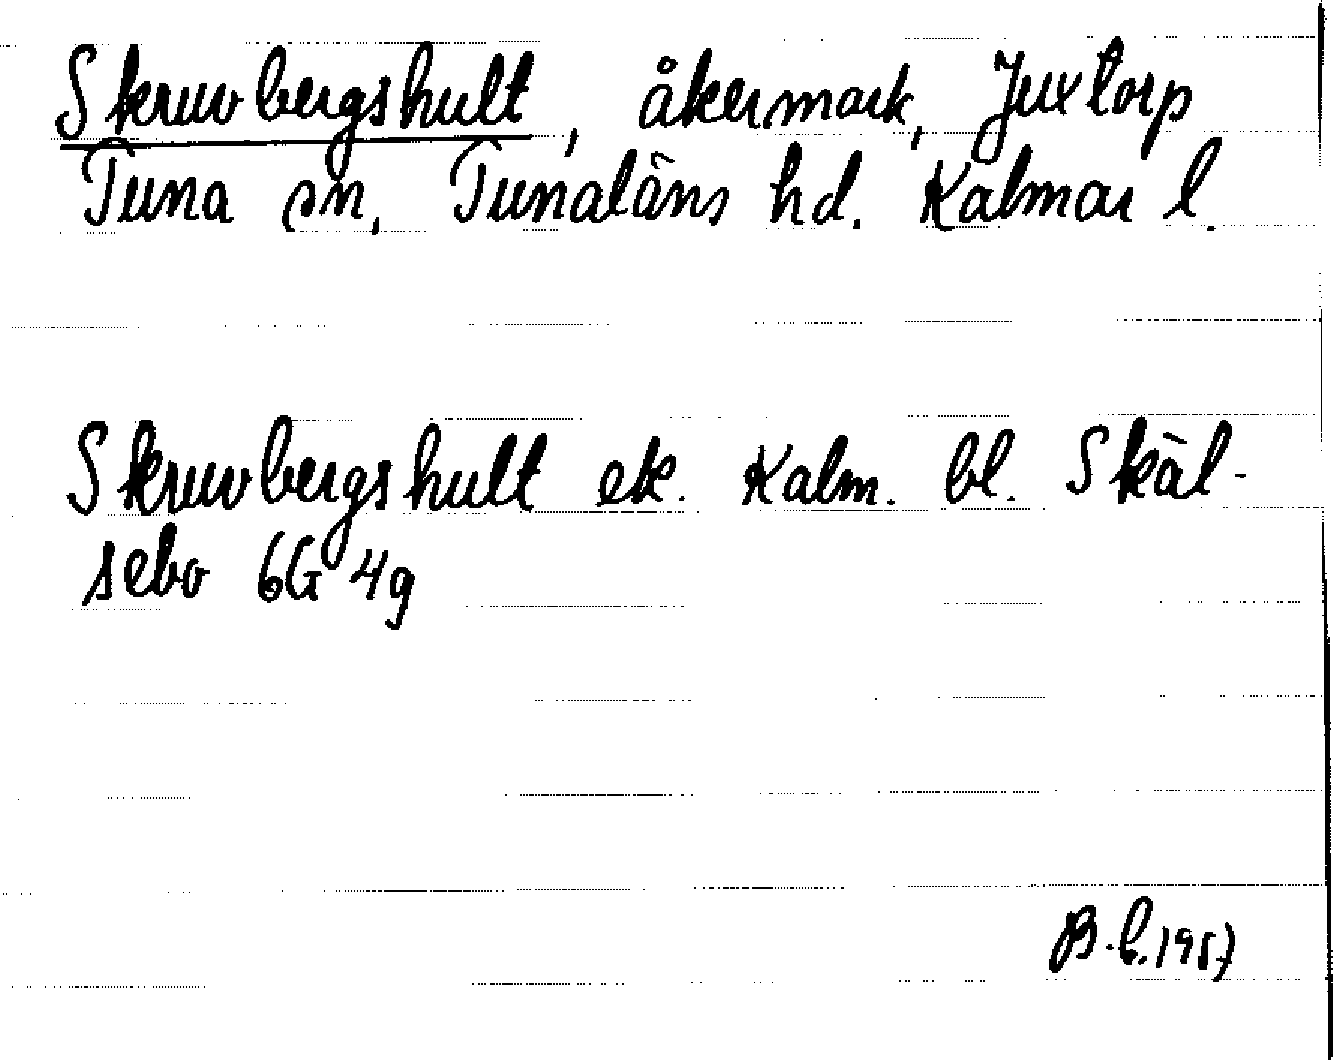 Skruvbergshult, åkermark, Juxtorp
Tuna sn, Tunaläns hd. Kalmar l.
Skruvbergshult ek. Kalm. bl. Skäl-
sebo 6G 4g
B.L. 1957